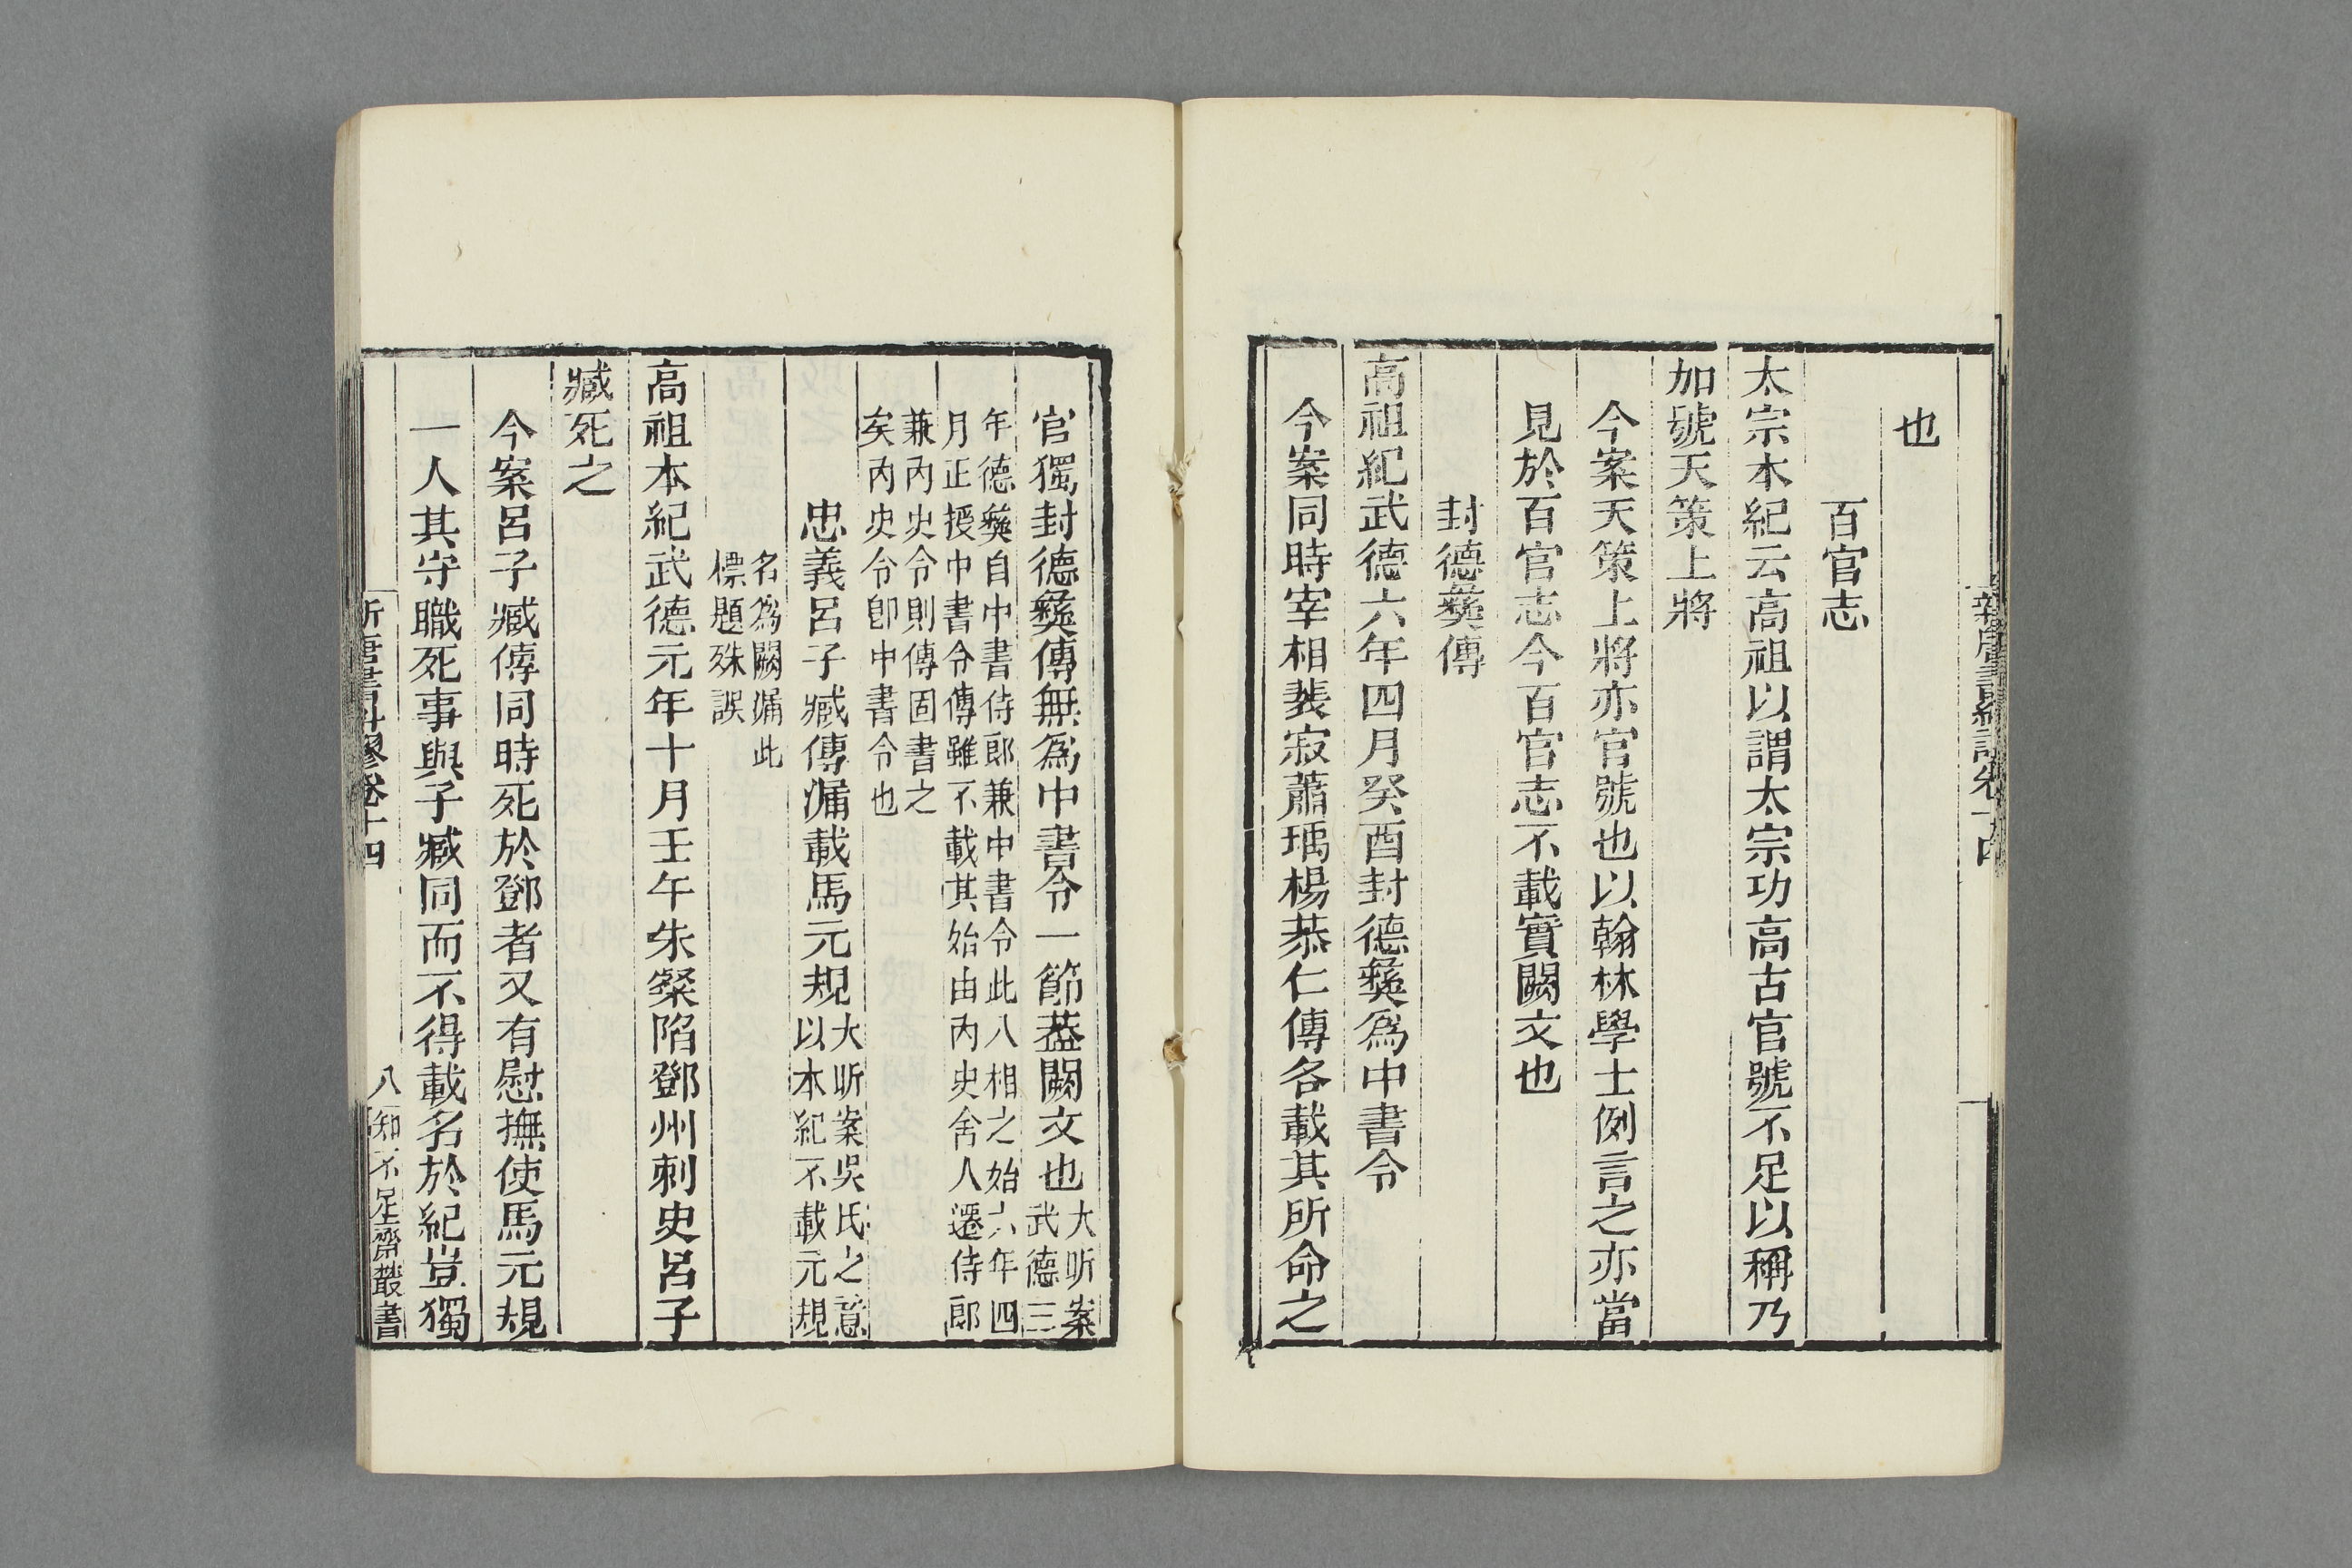 也
百官志
太宗本紀云高祖以謂太宗功高古官號不足以稱乃
加號天策上將
今案天策上將亦官號也以翰林學士例言之亦當
見於百官志今百官志不載實闕文也
封德彝傳
高祖紀武德六年四月癸酉封德彝爲中書令
今案同時宰相裴寂蕭瑀楊恭仁傳各載其所命之
官獨封德彝傳無爲中書令一節葢闕文也
大昕案
武德三
年德彝自中書侍郎兼中書令此八相之始六年四
月正授中書令傳雖不載其始由內史舍人遷侍郎
兼內史令則傳固書之
矣內史令卽中書令也
忠義呂子臧傳漏載馬元規
大昕案吳氏之意
以本紀不載元規
名爲闕漏此
標題殊誤
高祖本紀武德元年十月壬午朱粲陷鄧州刺史呂子
臧死之
今案呂子臧傳同時死於鄧者又有慰撫使馬元規
一人其守職死事與子臧同而不得載名於紀豈獨
八
知不足齋叢書